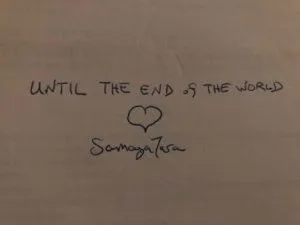 UNTIL THE END of THE WORLD
SamayaTara